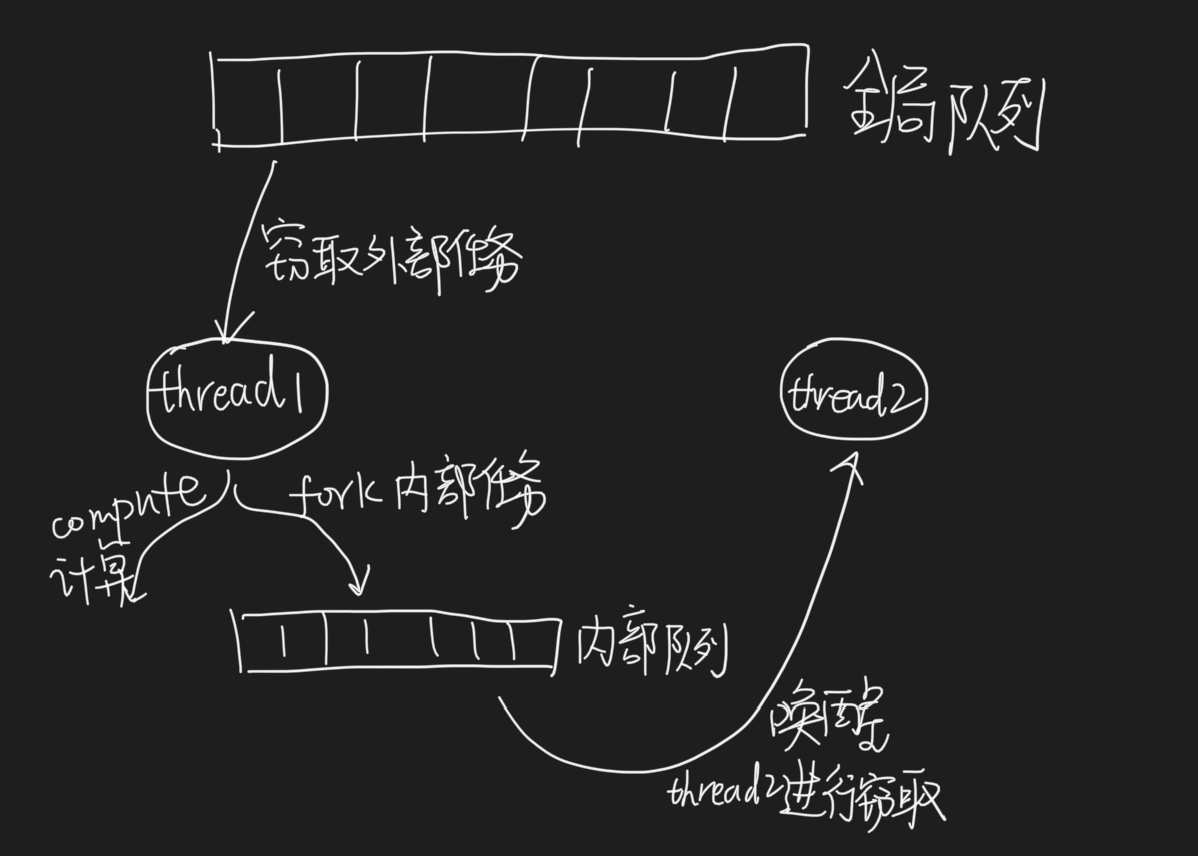 全局队列
窃取外部任务
thread1
thread2
compute
计算
fork 内部任务
内部队列
唤醒
thread2进行窃取